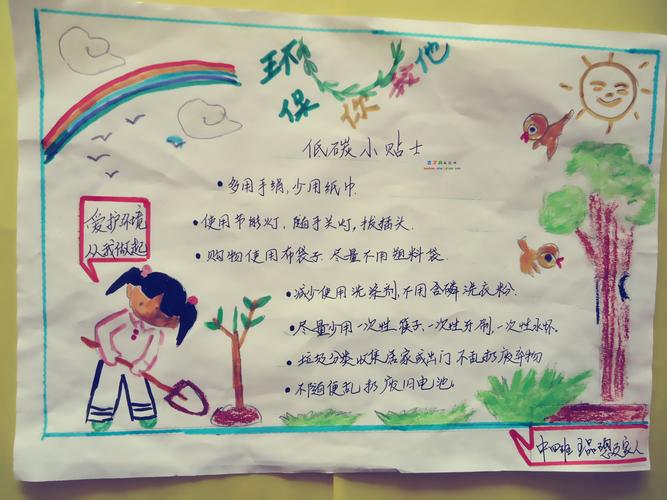 环保你我他
低碳小贴士
多用手绢,少用纸巾.
使用节能灯,随手关灯,拔插头.
爱护环境
从我做起
购物使用布袋子 尽量不用塑料袋.
减少使用洗涤剂,不用含磷洗衣粉.
尽量少用一次性筷子、一次性牙刷、一次性水杯.
垃圾分类收集居家或出门 不乱扔废弃物
不随便乱扔废旧电池.
中四班